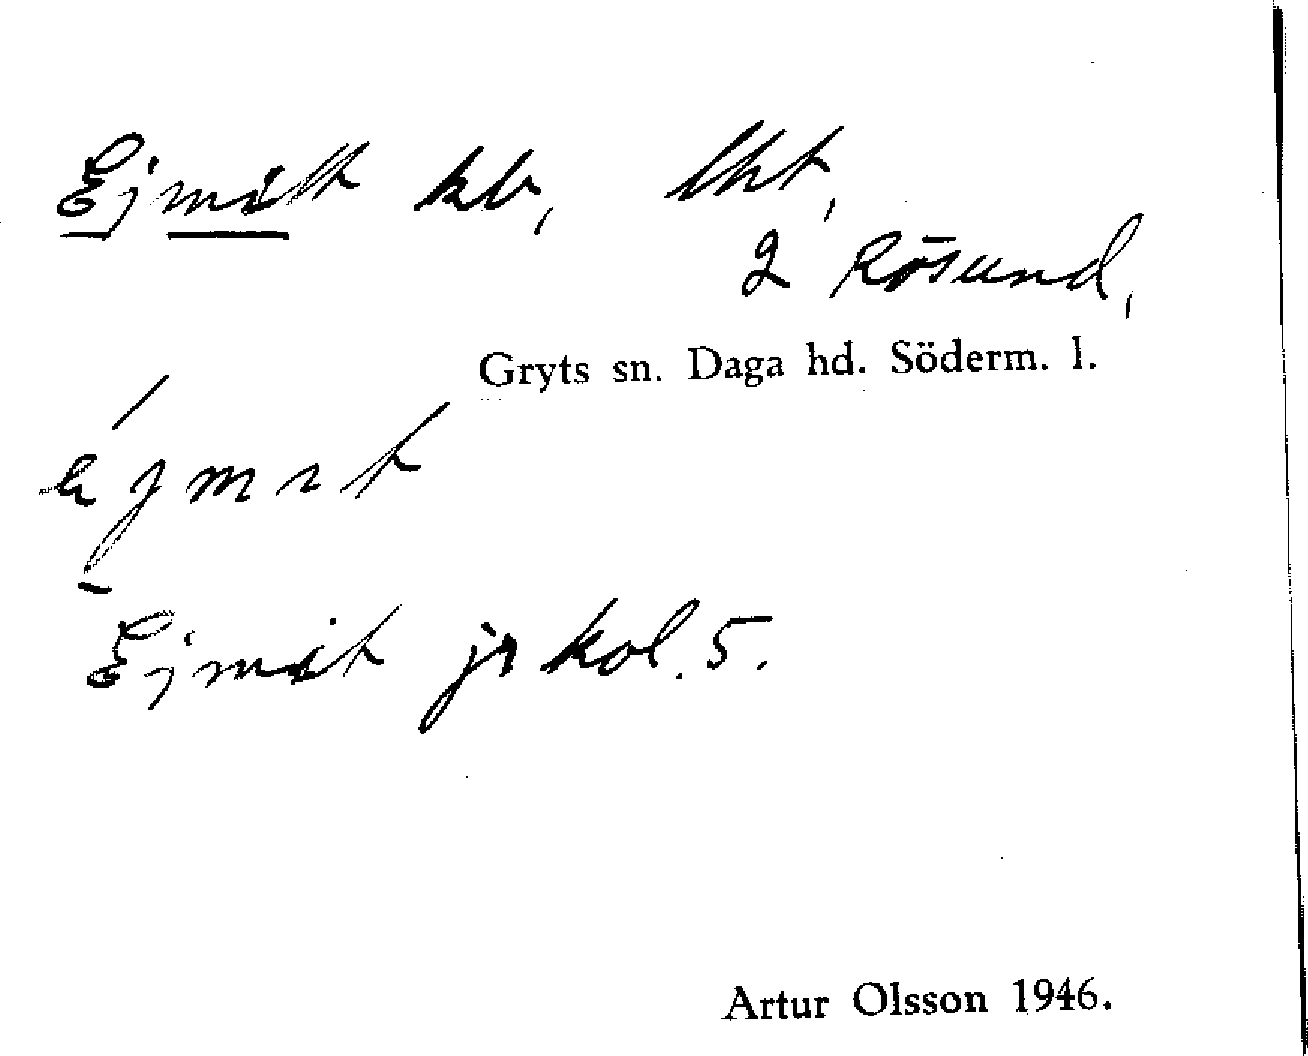 Ejmilt kb, lht,
2 Rösund,
Gryts sn. Daga hd. Söderm. l.
Ejmit jr kol. 5.
Artur Olsson 1946.